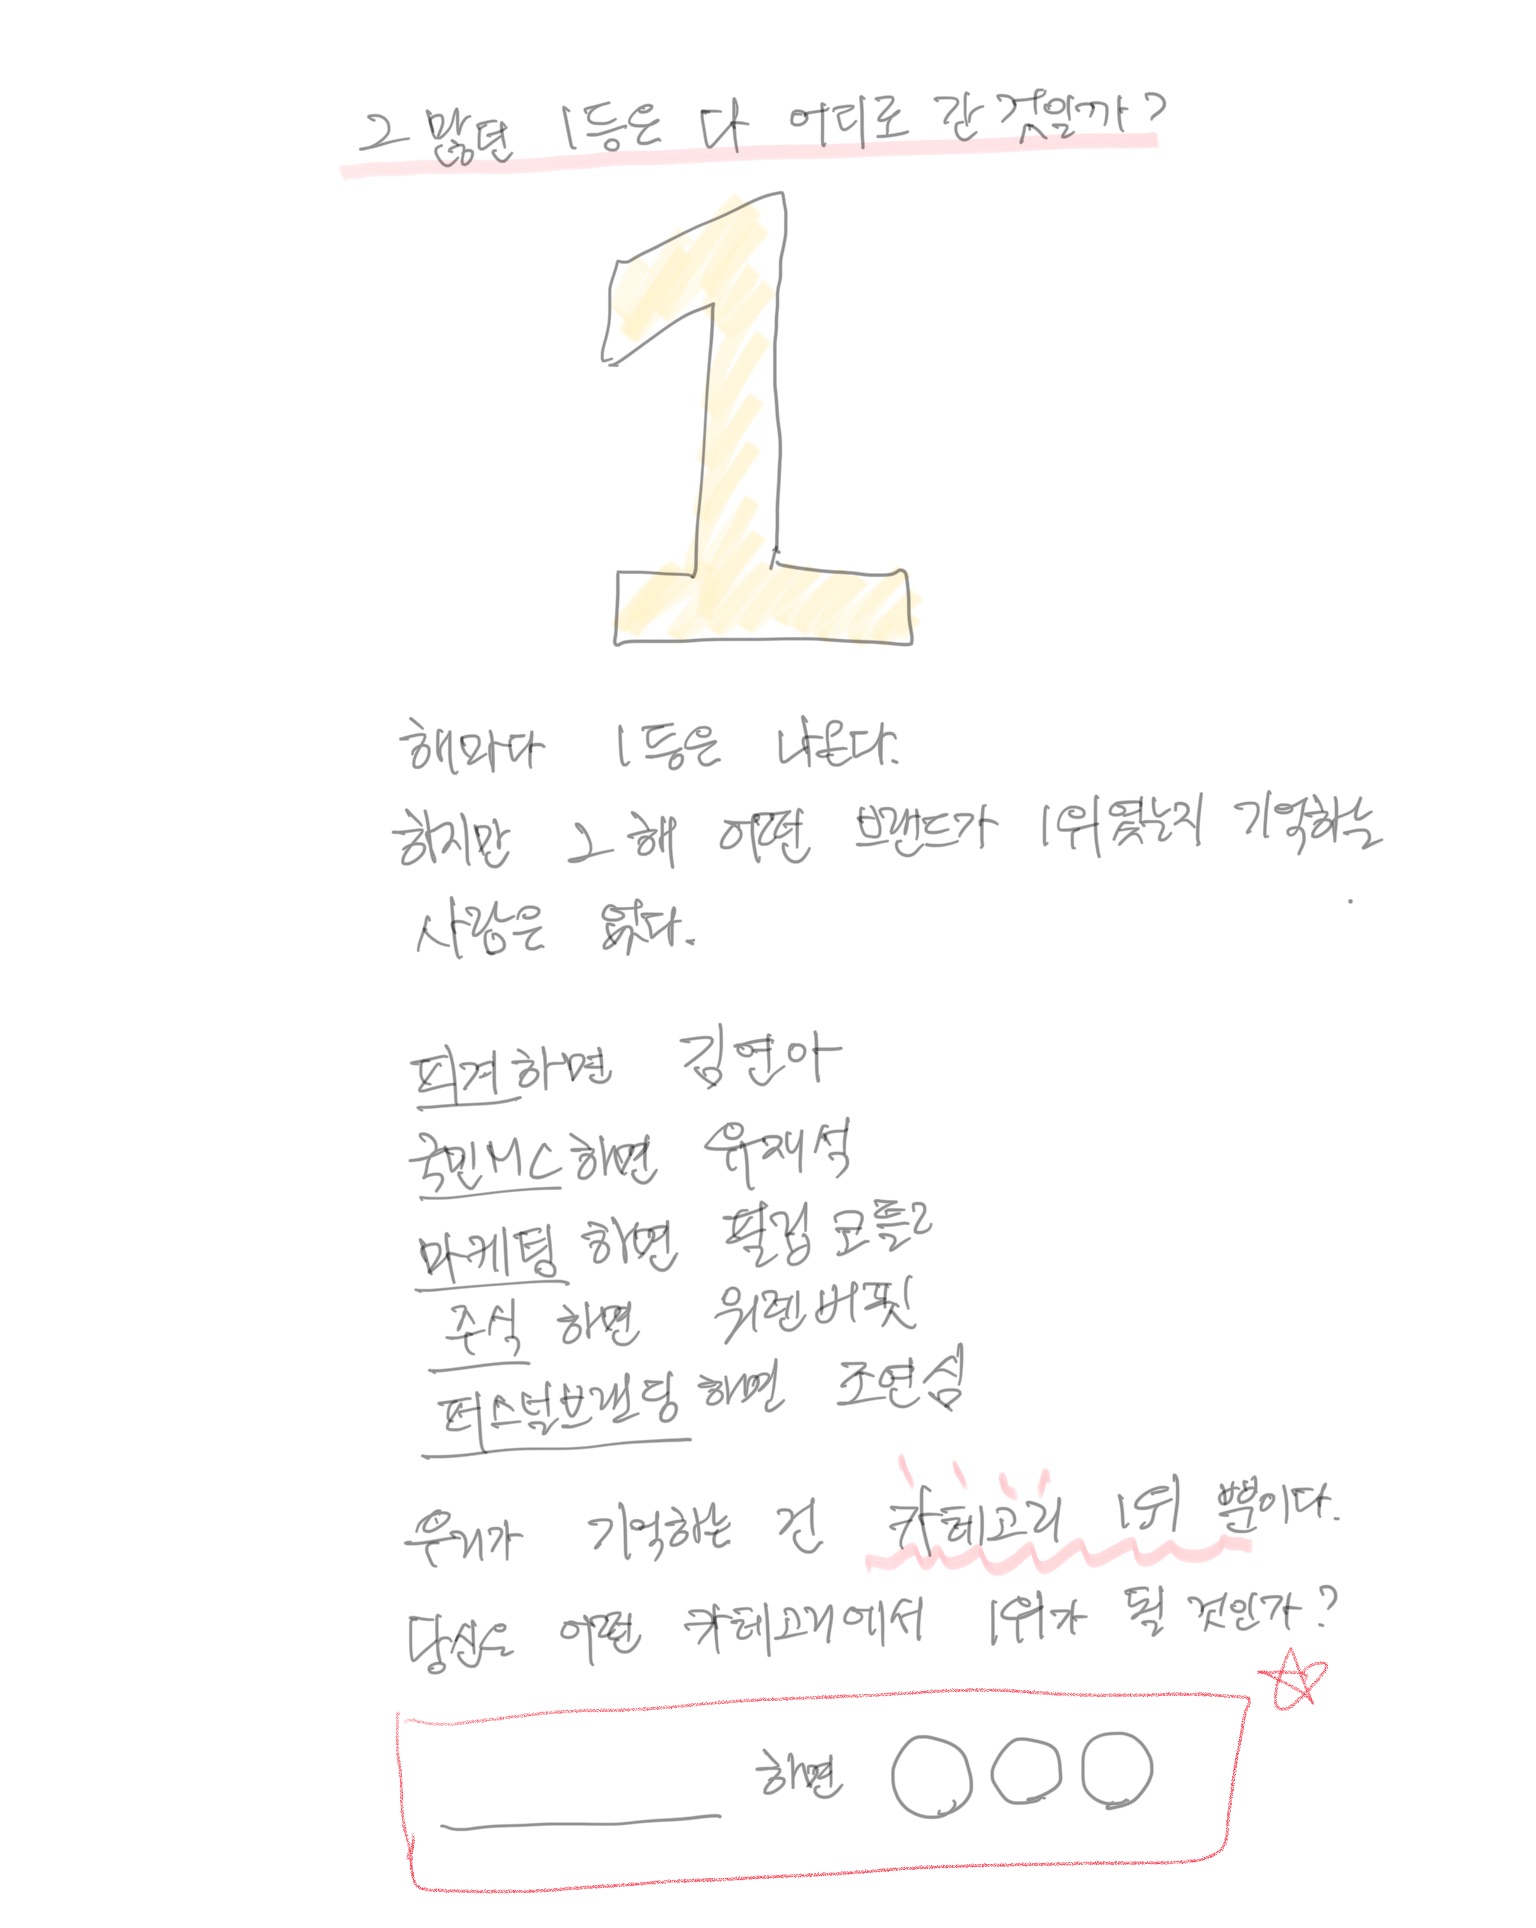 그 많던 1등은 다 어디로 간 것일까?
1
해마다 1등은 나온다.
하지만 그 해 어떤 브랜드가 1위였는지 기억하는
사람은 없다.
피겨하면 김연아
국민MC하면 유재석
마케팅 하면 필립 코틀러
주식 하면 워렌버핏
퍼스널브랜딩 하면 조연심
우리가 기억하는 건 카테고리 1위 뿐이다.
당신은 어떤 카테고리에서 1위가 될 것인가?
하면 ○○○